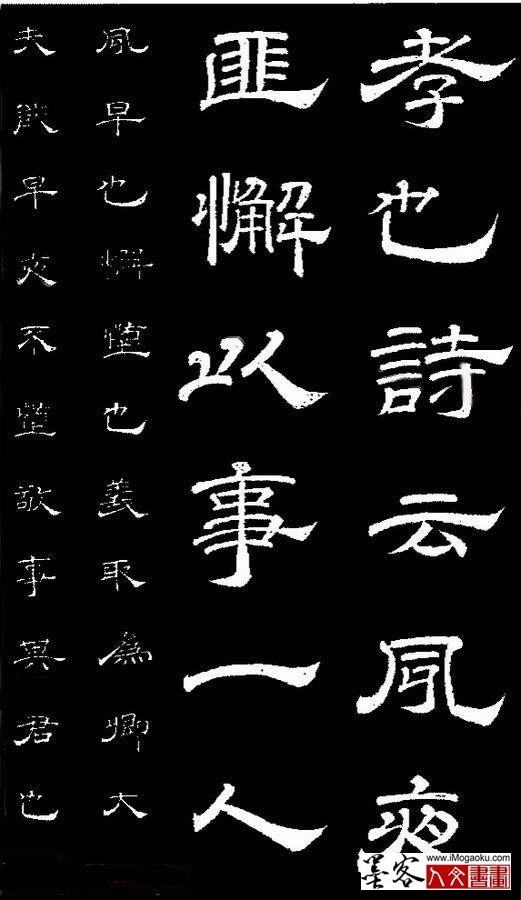 孝也詩云夙夜
匪懈以事一人
夙早也懈惰也義取為卿大
夫能早夜不惰敬事其君也
墨客
www.iMogaoku.com
人文書畫